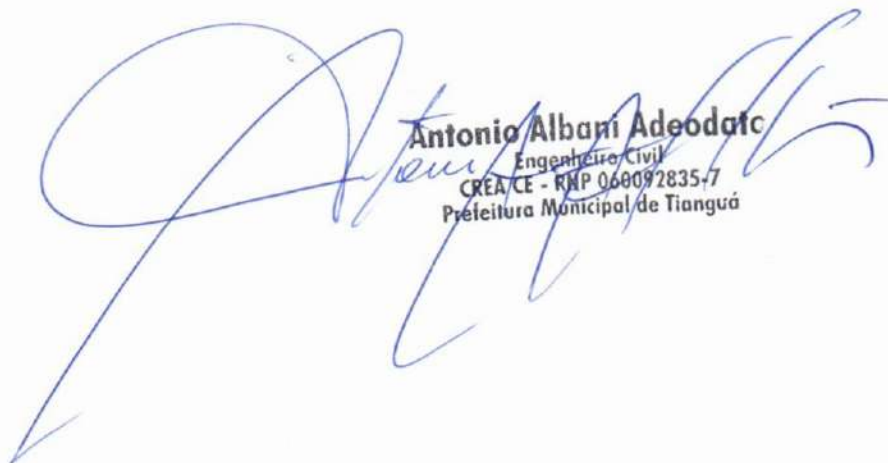 Antonio Albani Adeodato
Engenheiro Civil
CREA CE - RNP 060092835-7
Prefeitura Municipal de Tianguá